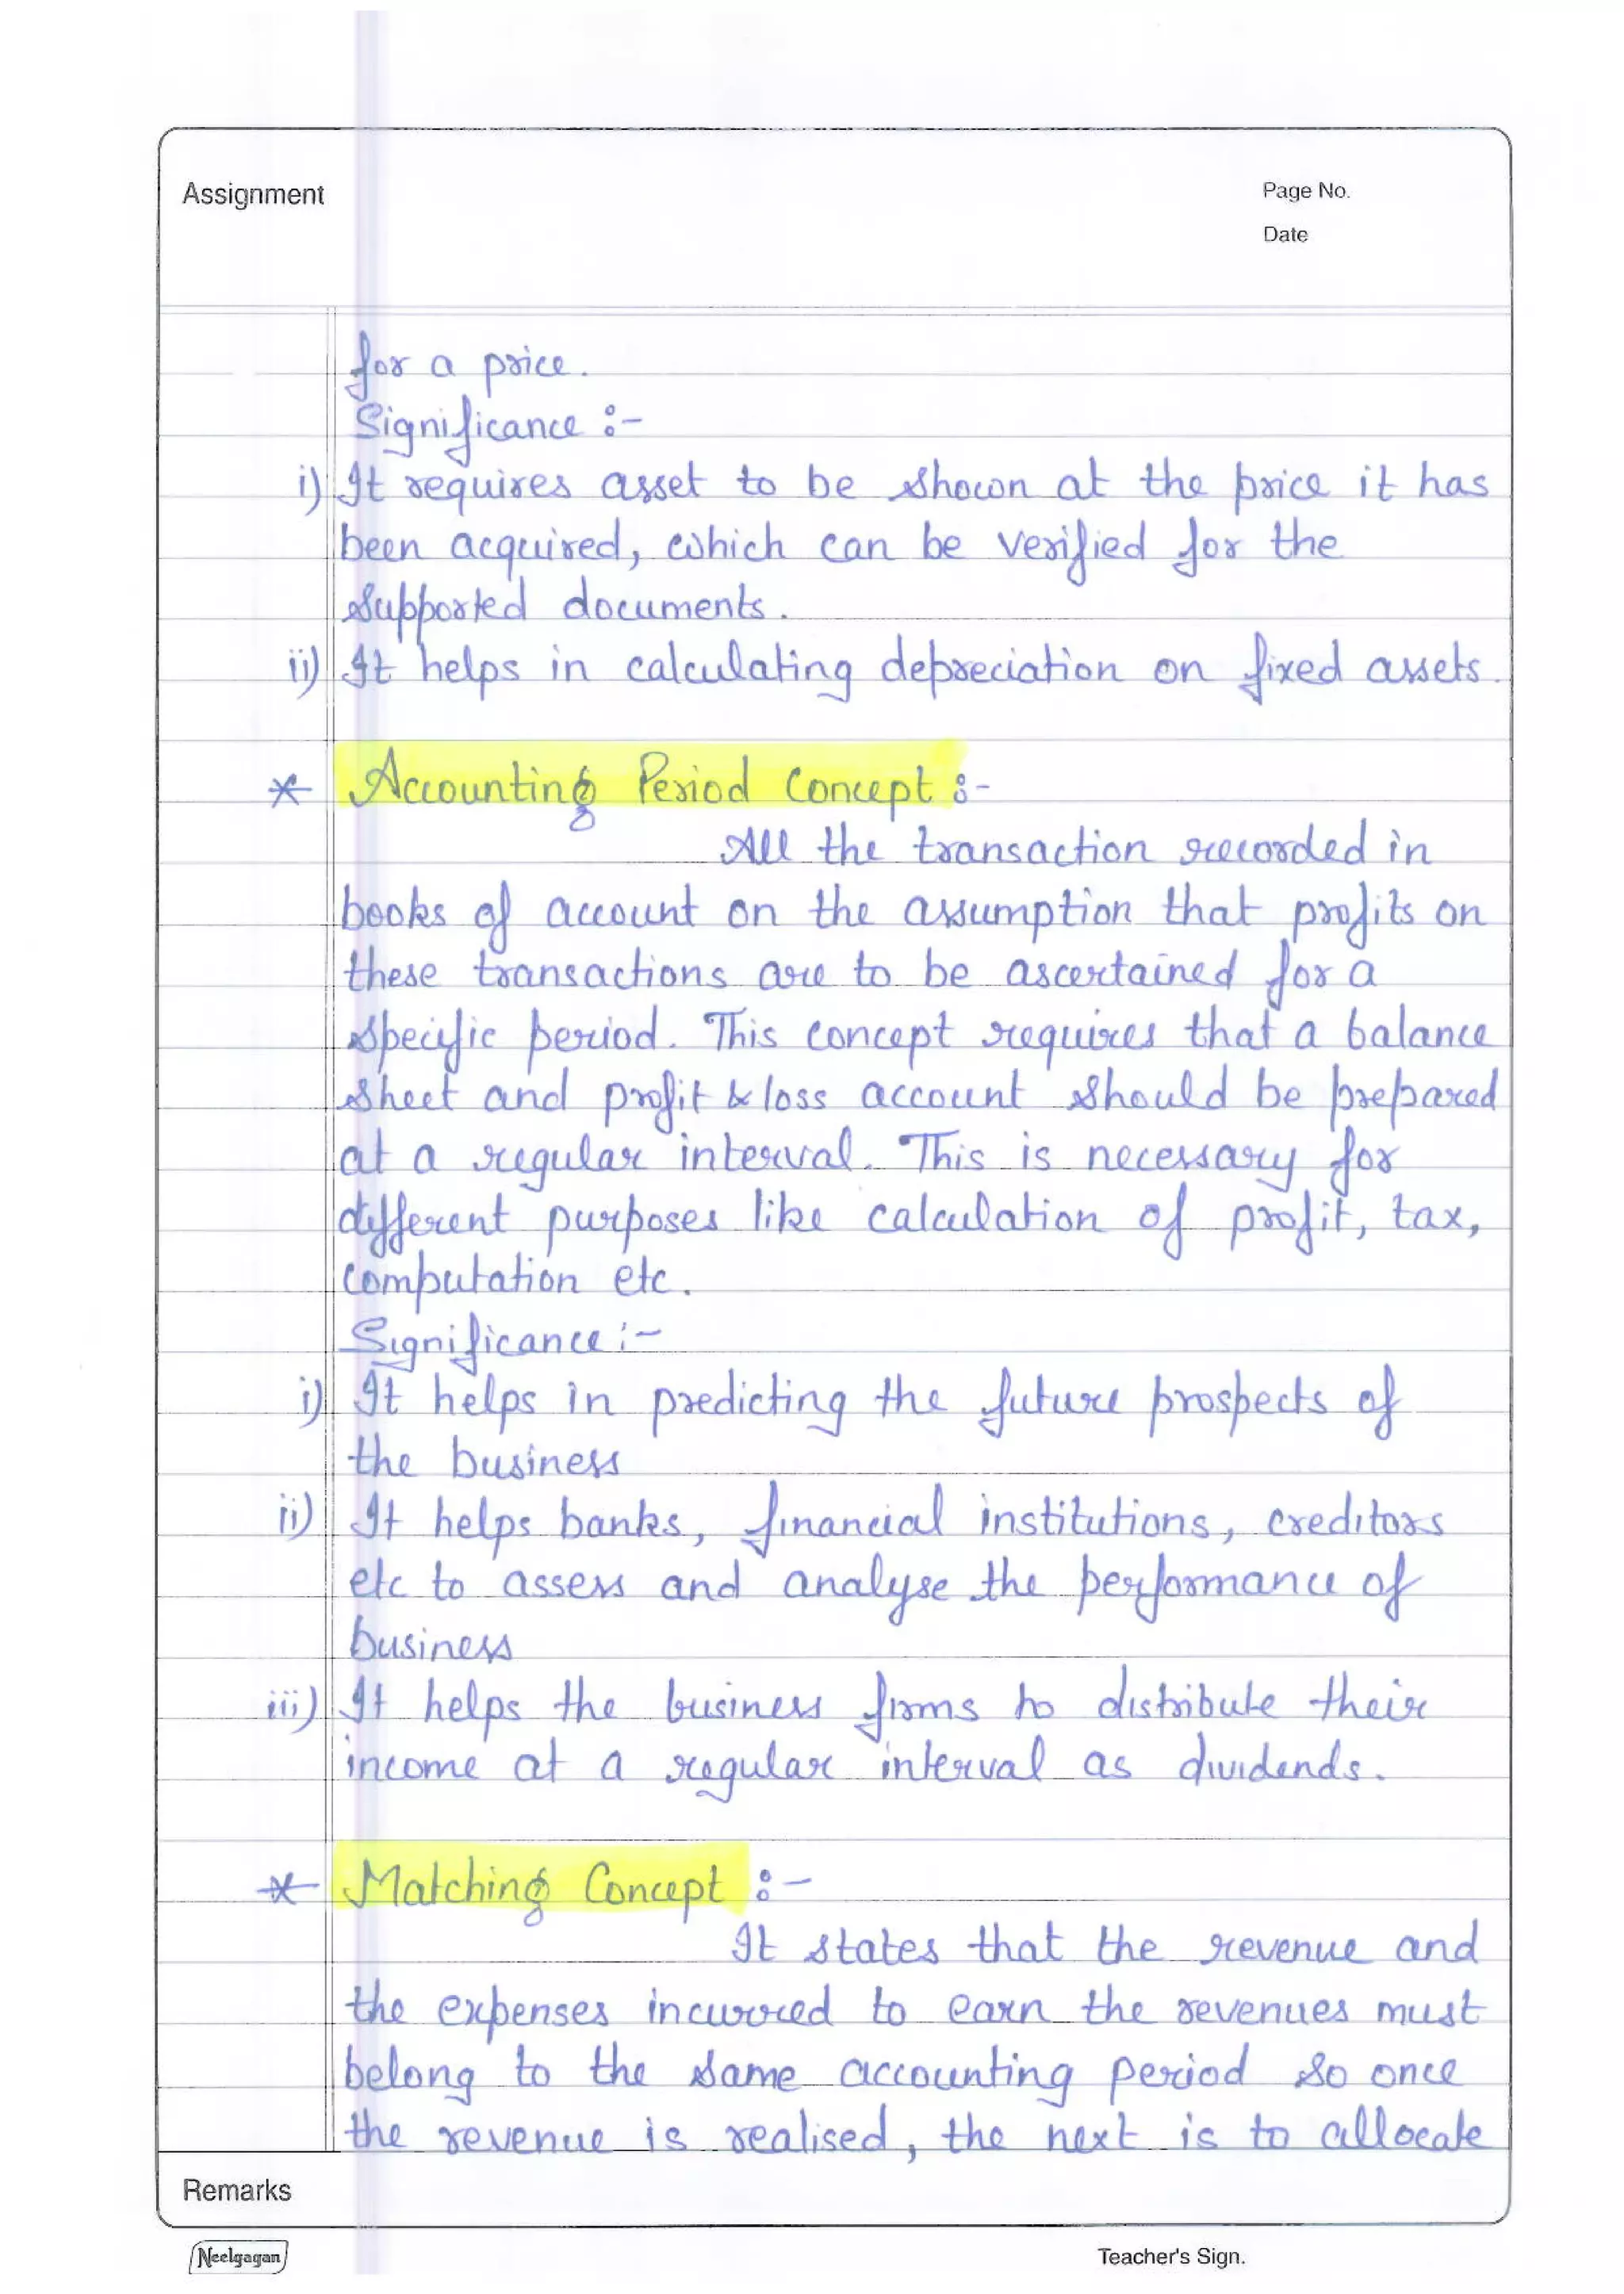 Assignment
Page No.
Date
for a price.
Significance :-
i) It requires asset to be shown at the price it has
been acquired, which can be verified for the
supported documents.
ii) It helps in calculating depreciation on fixed assets.
* Accounting Period Concept :-
All the transaction recorded in
books of account on the assumption that profits on
these transactions are to be ascertained for a
specific period. This concept requires that a balance
sheet and profit & loss account should be prepared
at a regular interval. This is necessary for
different purposes like calculation of profit, tax,
computation etc.
Significance :-
i) It helps in predicting the future prospects of
the business
ii) It helps banks, financial institutions, creditors
etc to assess and analyse the performance of
business
iii) It helps the business firms to distribute their
income at a regular interval as dividends.
* Matching Concept :-
It states that the revenue and
the expenses incurred to earn the revenues must
belong to the same accounting period so once
the revenue is realised, the next is to allocate
Remarks
Neelgagan
Teacher's Sign.